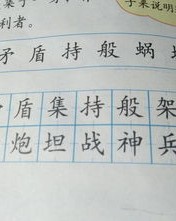 子来说明
利者。
矛盾持般蜗
盾集持般架
炮坦战神兵